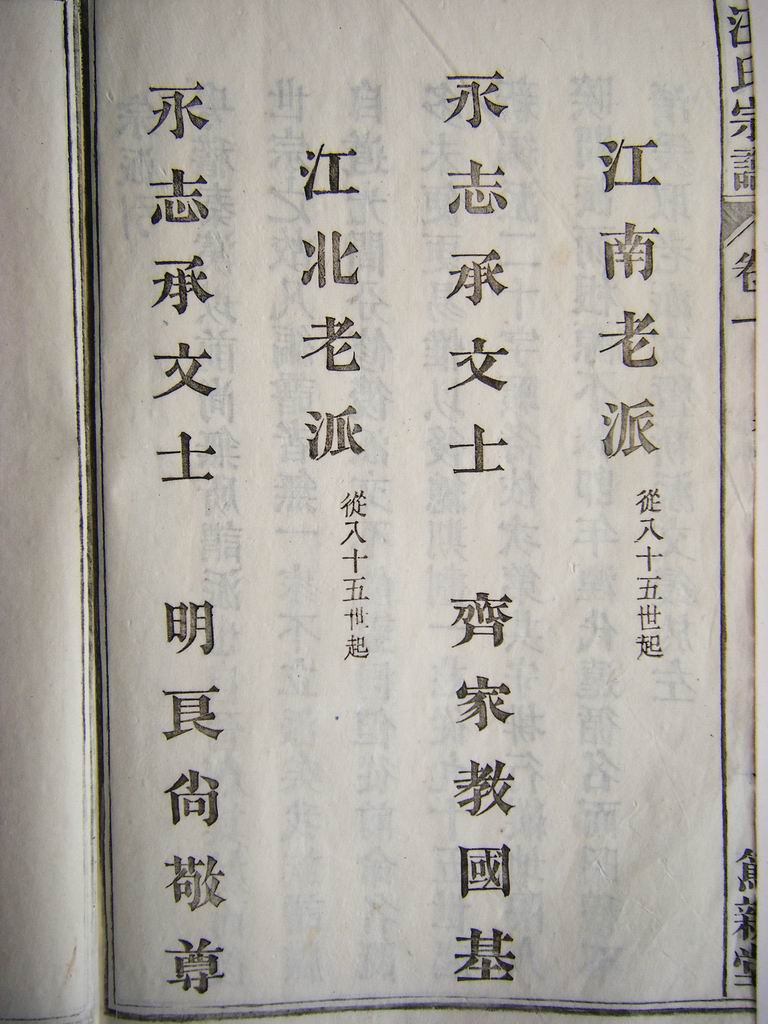 汪氏宗譜 卷一
江南老派 從八十五世起
永志承文士 齊家教國基
江北老派 從八十五世起
永志承文士 明良尚敬尊